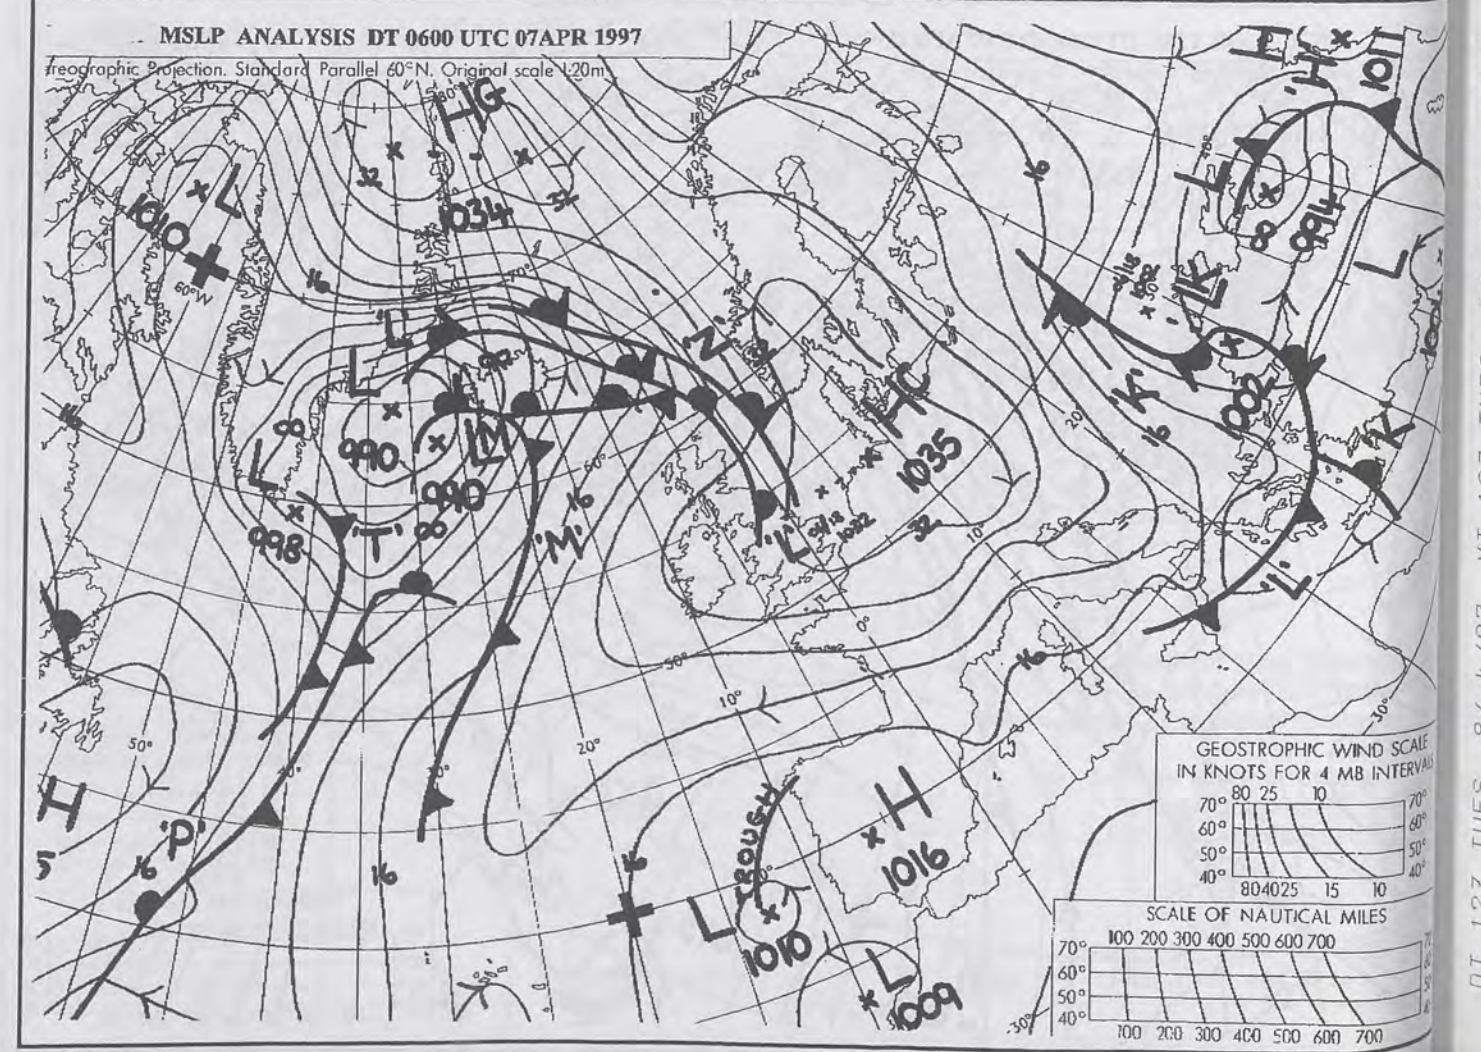 MSLP ANALYSIS DT 0600 UTC 07APR 1997
reographic Projection. Standard Parallel 60°N. Original scale 1:20m
80°
HG
32
1034
32
L
1010
60°W
16
70°
16
H
'H'
1011
40°
L
80
994
L
1002
LK
'L'
L
990
LM
990
08
L
998
'T'
08
'M'
16
60°
'Z'
HC
1035
'L'
04/18
1032
32
20°
'K'
16
1002
K
'L'
10°
0°
50°
10°
20°
16
30°
50°
H
5
'P'
16
16
16
TROUGH
L
1010
H
1016
L
1009
30°
GEOSTROPHIC WIND SCALE
IN KNOTS FOR 4 MB INTERVALS
80 25 10
70° 70°
60° 60°
50° 50°
40° 40°
80 40 25 15 10
SCALE OF NAUTICAL MILES
100 200 300 400 500 600 700
70°
60°
50°
40°
100 200 300 400 500 600 700